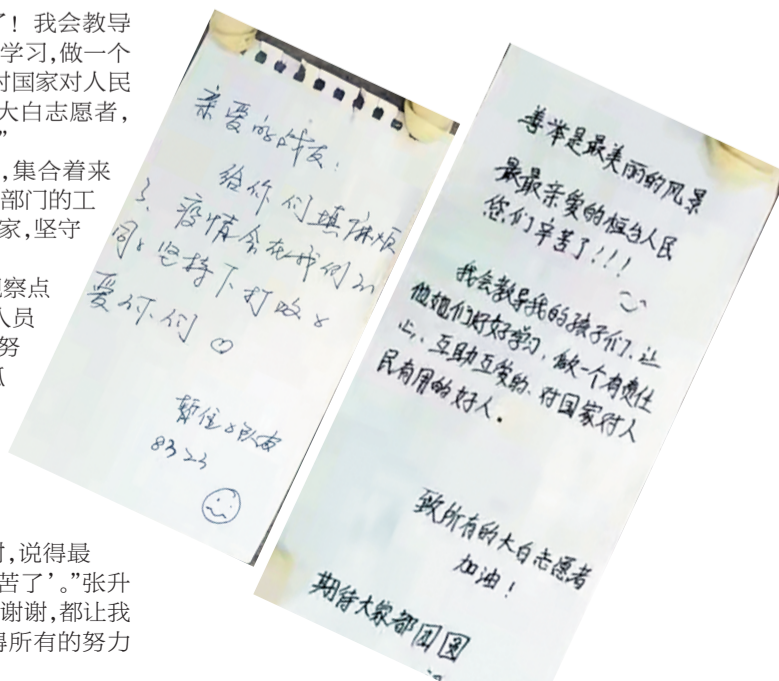 了！我会教导
学习,做一个
对国家对人民
大白志愿者,
”
,集合着来
部门的工
家,坚守
观察点
人员
努
时,说得最
苦了’。”张升
谢谢,都让我
得所有的努力
亲爱的战友：
给你们填麻烦
了、疫情会在我们
同、坚持下打败。
爱你们
暂住 队友
8323
善举是最美丽的风景
最最亲爱的桓台人民
您们辛苦了！！！
我会教导我的孩子们、让
他她们好好学习、做一个有责任
心、互助互爱的、对国家对人
民有用的好人。
致所有的大白志愿者
加油！
期待大家都团圆